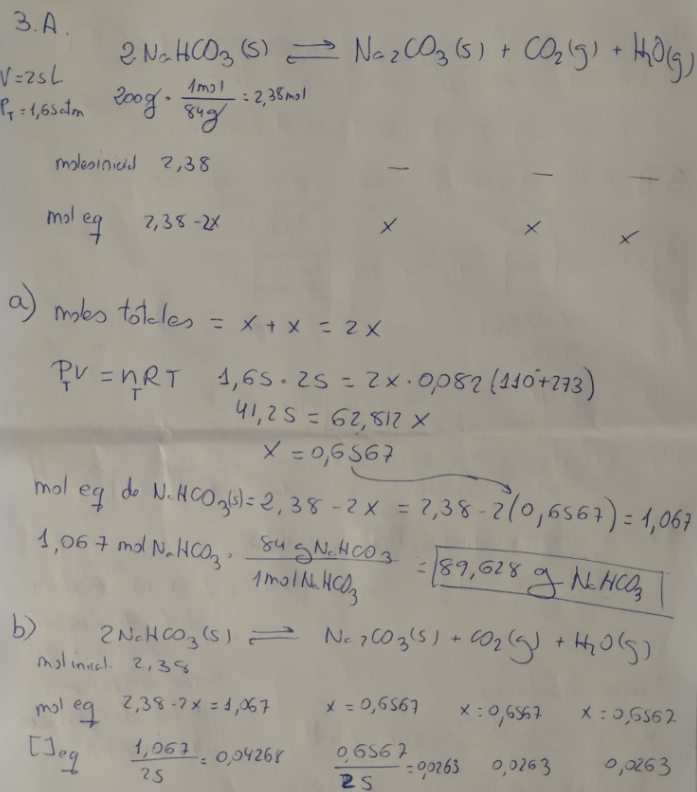 3.A.
2NaHCO₃(s) ⇌ Na₂CO₃(s) + CO₂(g) + H₂O(g)
V=25L
P_T=1,65atm
200g · 1mol/84g = 2,38mol
moles inicial 2,38 — — —
mol eq 2,38-2x x x x
a) moles totales = x + x = 2x
P_T V = n_T RT 1,65 · 25 = 2x · 0,082 (110+273)
41,25 = 62,812 x
x = 0,6567
mol eq de NaHCO₃(s) = 2,38 - 2x = 2,38 - 2(0,6567) = 1,067
1,067 mol NaHCO₃ · 84 g NaHCO₃/1mol NaHCO₃ = 89,628 g NaHCO₃
b) 2NaHCO₃(s) ⇌ Na₂CO₃(s) + CO₂(g) + H₂O(g)
mol inicial. 2,38
mol eq 2,38-2x = 1,067 x = 0,6567 x = 0,6567 x = 0,6567
[ ]eq 1,067/25 = 0,04268 0,6567/25 = 0,0263 0,0263 0,0263